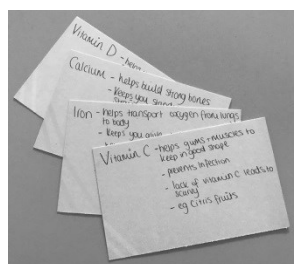 Vitamin D - helps
Calcium - helps build strong bones
- Keeps you strong
Iron - helps transport oxygen from lungs
to body
- Keeps you
Vitamin C - helps gums + muscles to
keep in good shape
- prevents infection
- lack of vitamin C leads to
scurvy
- eg citris fruits